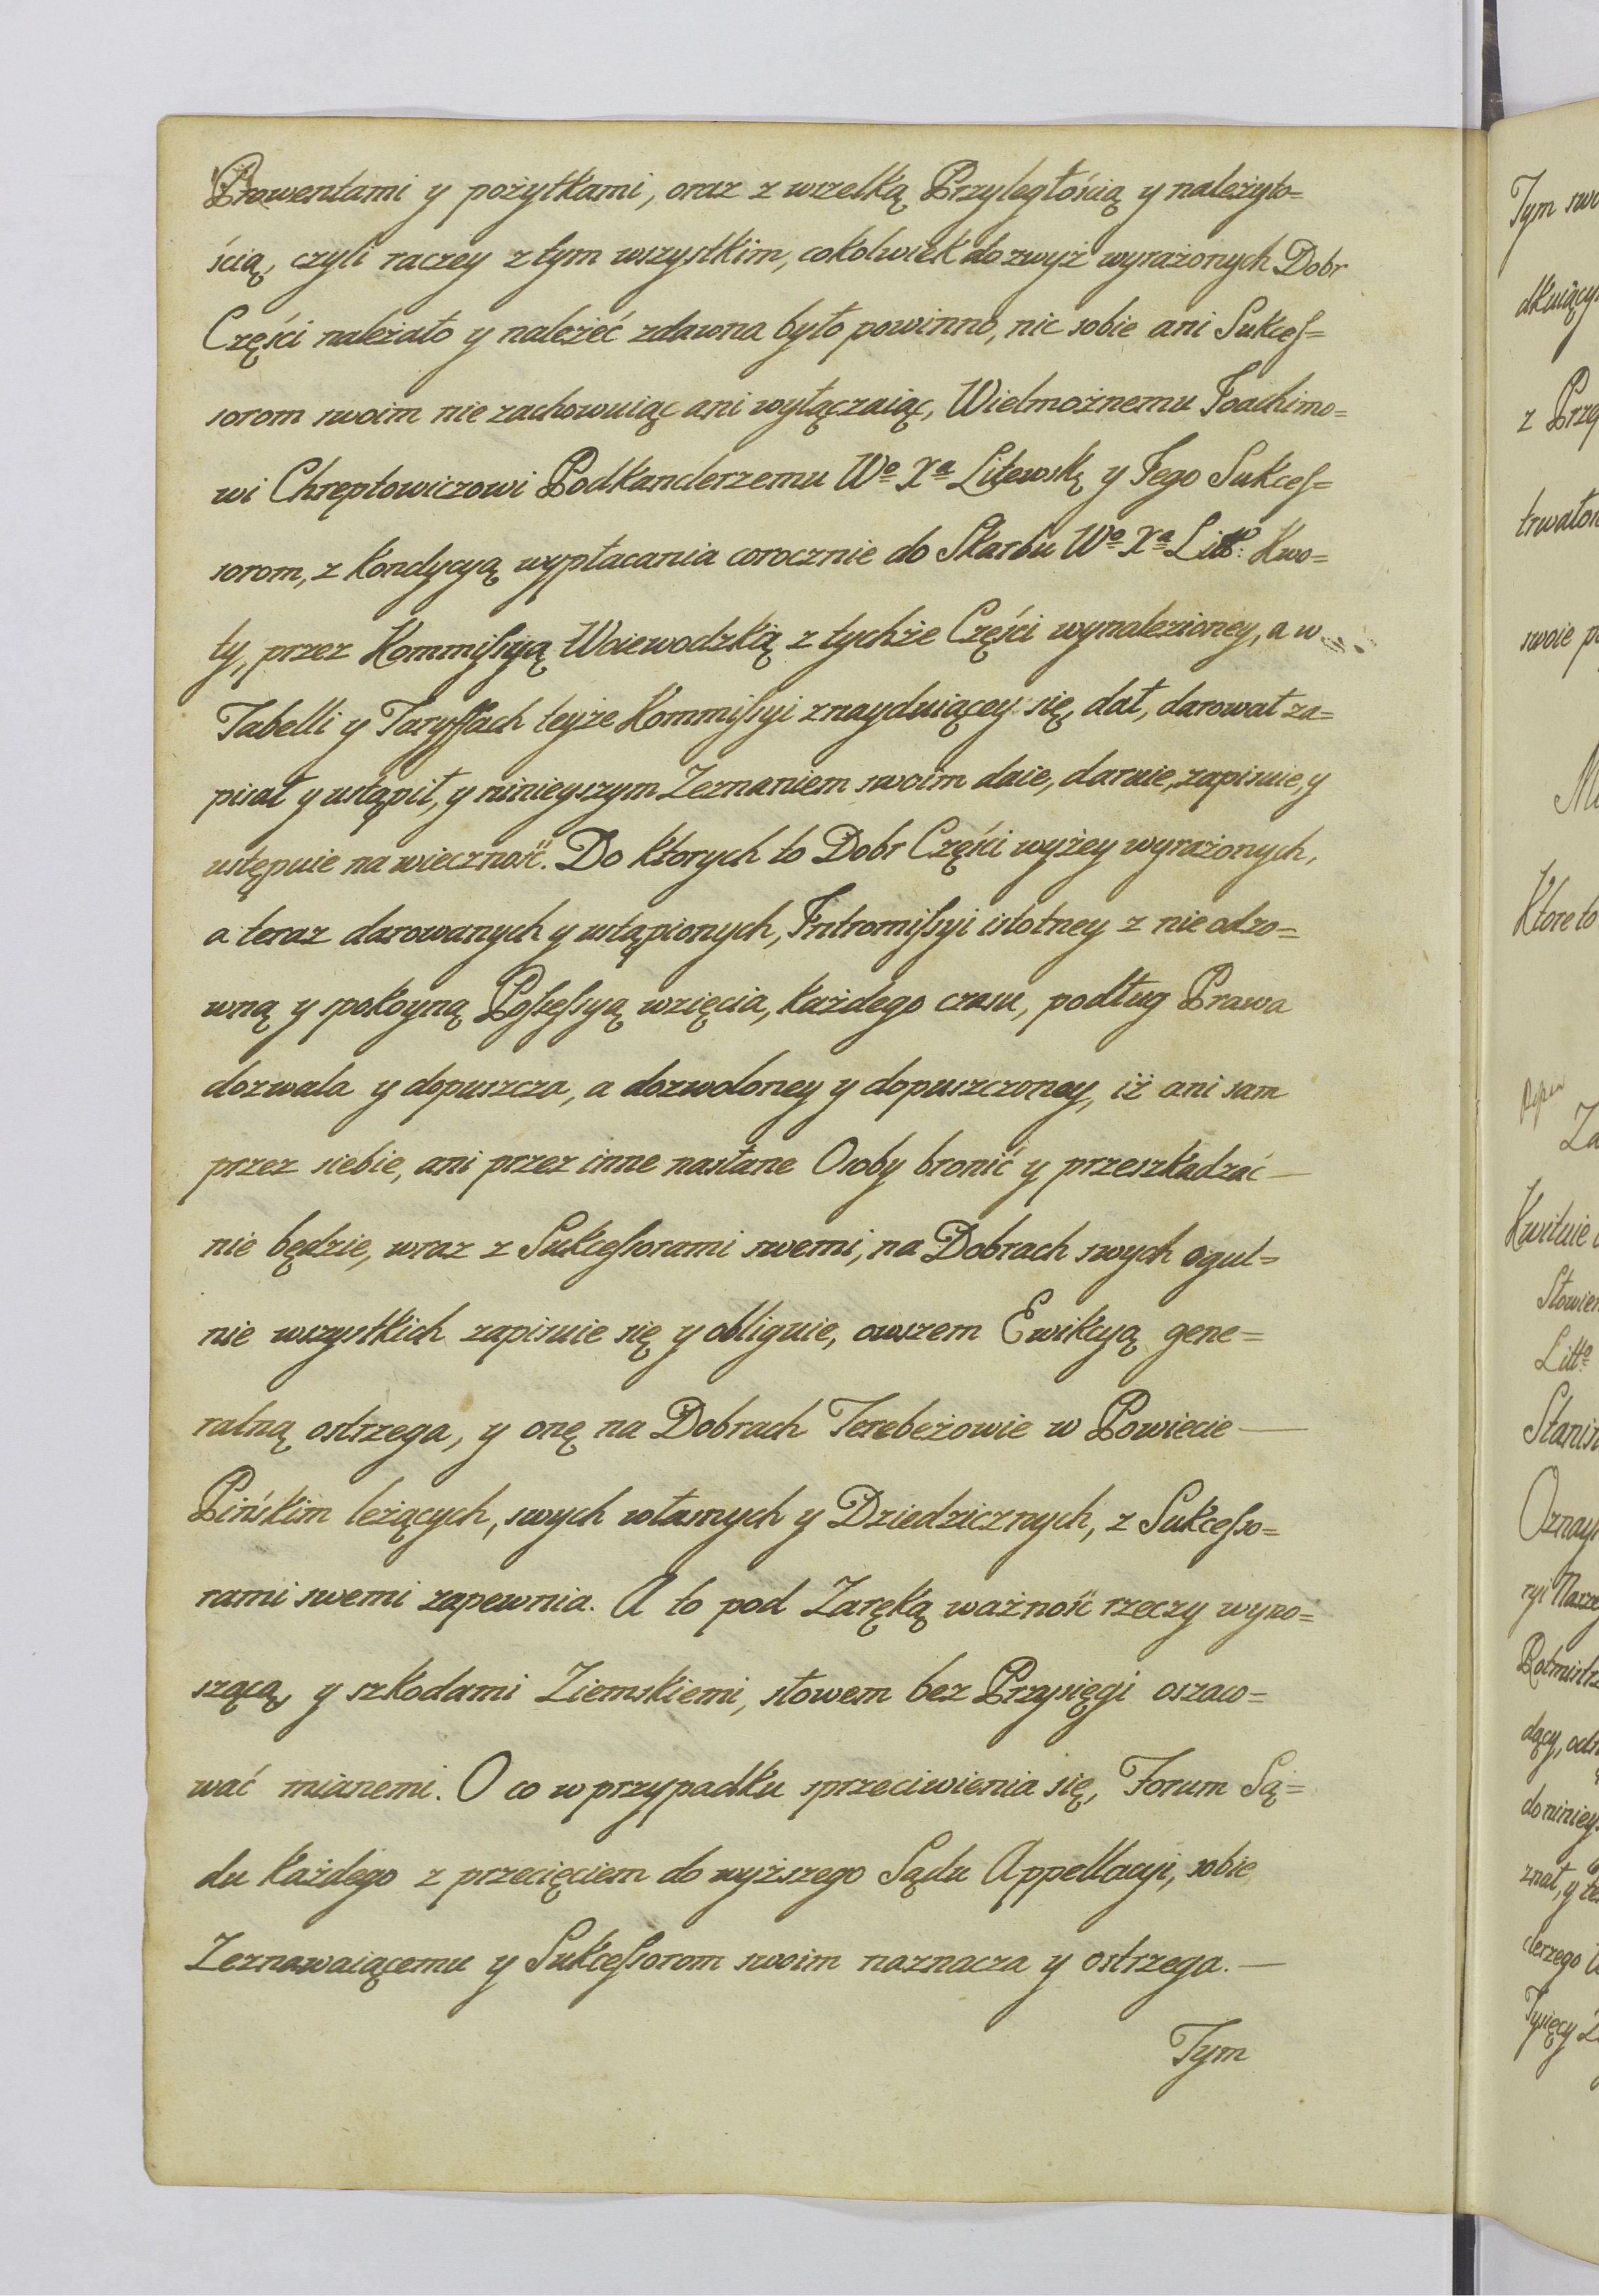 Prowentami y pożytkami, oraz z wszelką Przyległością y należyto=
ścią, czyli raczey z tym wszystkim, cokolwiek do zwyż wyrażonych Dobr
Części należało y należeć zdawna było powinno, nic sobie ani Sukceſ=
sorom swoim nie zachowuiąc ani wyłączaiąc, Wielmożnemu Joachimo=
wi Chreptowiczowi Podkanclerzemu Wº Xª Litewsk: y Jego Sukceſ=
sorom, z kondycyą wypłacania corocznie do Skarbu Wº Xª Littº: Kwo=
ty, przez Kommiſsyą Woiewodzką z tychże Części wynalezioney, a w
Tabelli y Taryffach teyże Kommiſsyi znayduiącey się, dał, darował za=
pisał y ustąpił, y ninieyszym Zeznaniem swoim daie, daruie, zapisuie, y
ustępuie na wieczność. Do ktorych to Dobr Części wyżey wyrażonych,
a teraz darowanych y ustąpionych, Intromiſsyi istotney z nieodzo=
wną y spokoyną Poſseſsyą wzięcia, każdego czasu, podług Prawa
dozwala y dopuszcza, a dozwoloney y dopuszczoney, iż ani sam
przez siebie, ani przez inne nasłane Osoby bronić y przeszkadzać —
nie będzie, wraz z Sukceſsorami swemi, na Dobrach swych ogul=
nie wszystkich zapisuie się y obliguie, owszem Ewikcyą gene=
ralną ostrzega, y onę na Dobrach Terebeżowie w Powiecie —
Pińskim leżących, swych własnych y Dziedzicznych, z Sukceſso=
rami swemi zapewnia. A to pod Zaręką ważność rzeczy wyno=
szącą, y szkodami Ziemskiemi, słowem bez Przysięgi oszaco=
wać mianemi. O co w przypadku sprzeciwienia się, Forum Są=
du każdego z przecięciem do wyższego Sądu Appellacyi, sobie
Zeznawaiącemu y Sukceſsorom swoim naznacza y ostrzega. —
Tym
Tym
z
swoie
Ktore to
Kwituie
Littº